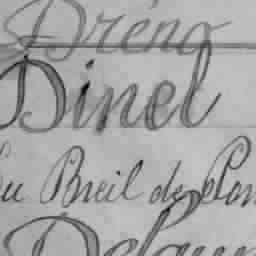 Dréno
Dinel
du Breil de Pon
Delaun